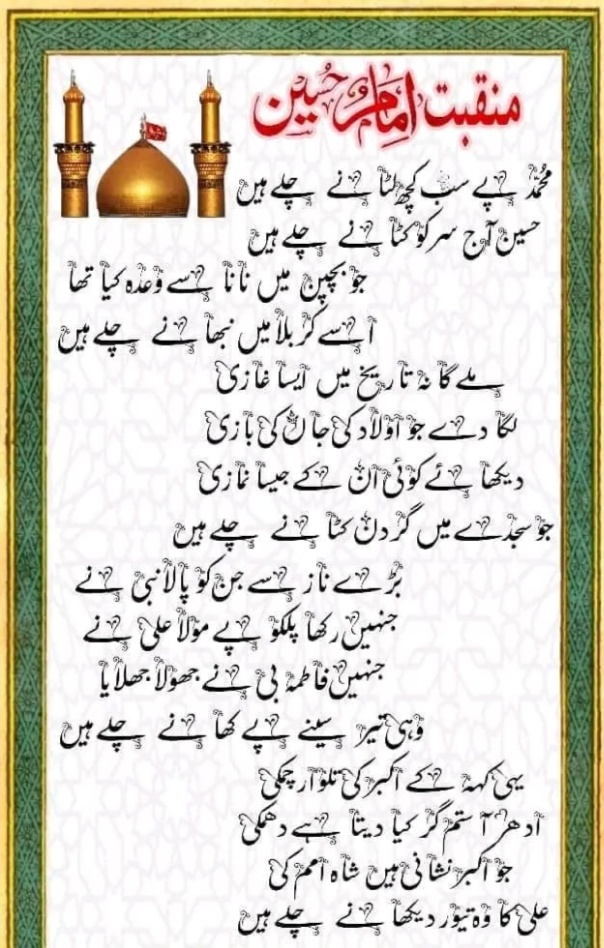 منقبت امام حسین
محمدؐ پے سب کچھ لٹا نے چلے ہیں
حسین آج سر کو کٹا نے چلے ہیں
جو بچپن میں نانا سے وعدہ کیا تھا
اسے کربلا میں نبھا نے چلے ہیں
ملے گا نہ تاریخ میں ایسا غازی
لگا دے جو اولاد کی جان کی بازی
دیکھا ئے کوئی ان کے جیسا نمازی
جو سجدے میں گردن کٹا نے چلے ہیں
بڑے ناز سے جن کو پالا نبی نے
جنہیں رکھا پلکو پے مولا علی نے
جنہیں فاطمہ بی نے جھولا جھلایا
وہی تیر سینے پے کھا نے چلے ہیں
یہی کہہ کے اکبر کی تلوار چمکی
ادھر آ ستم گر کیا دیتا ہے دھمکی
جو اکبر نشانی ہیں شاہ امم کی
علی کا وہ تیور دیکھا نے چلے ہیں